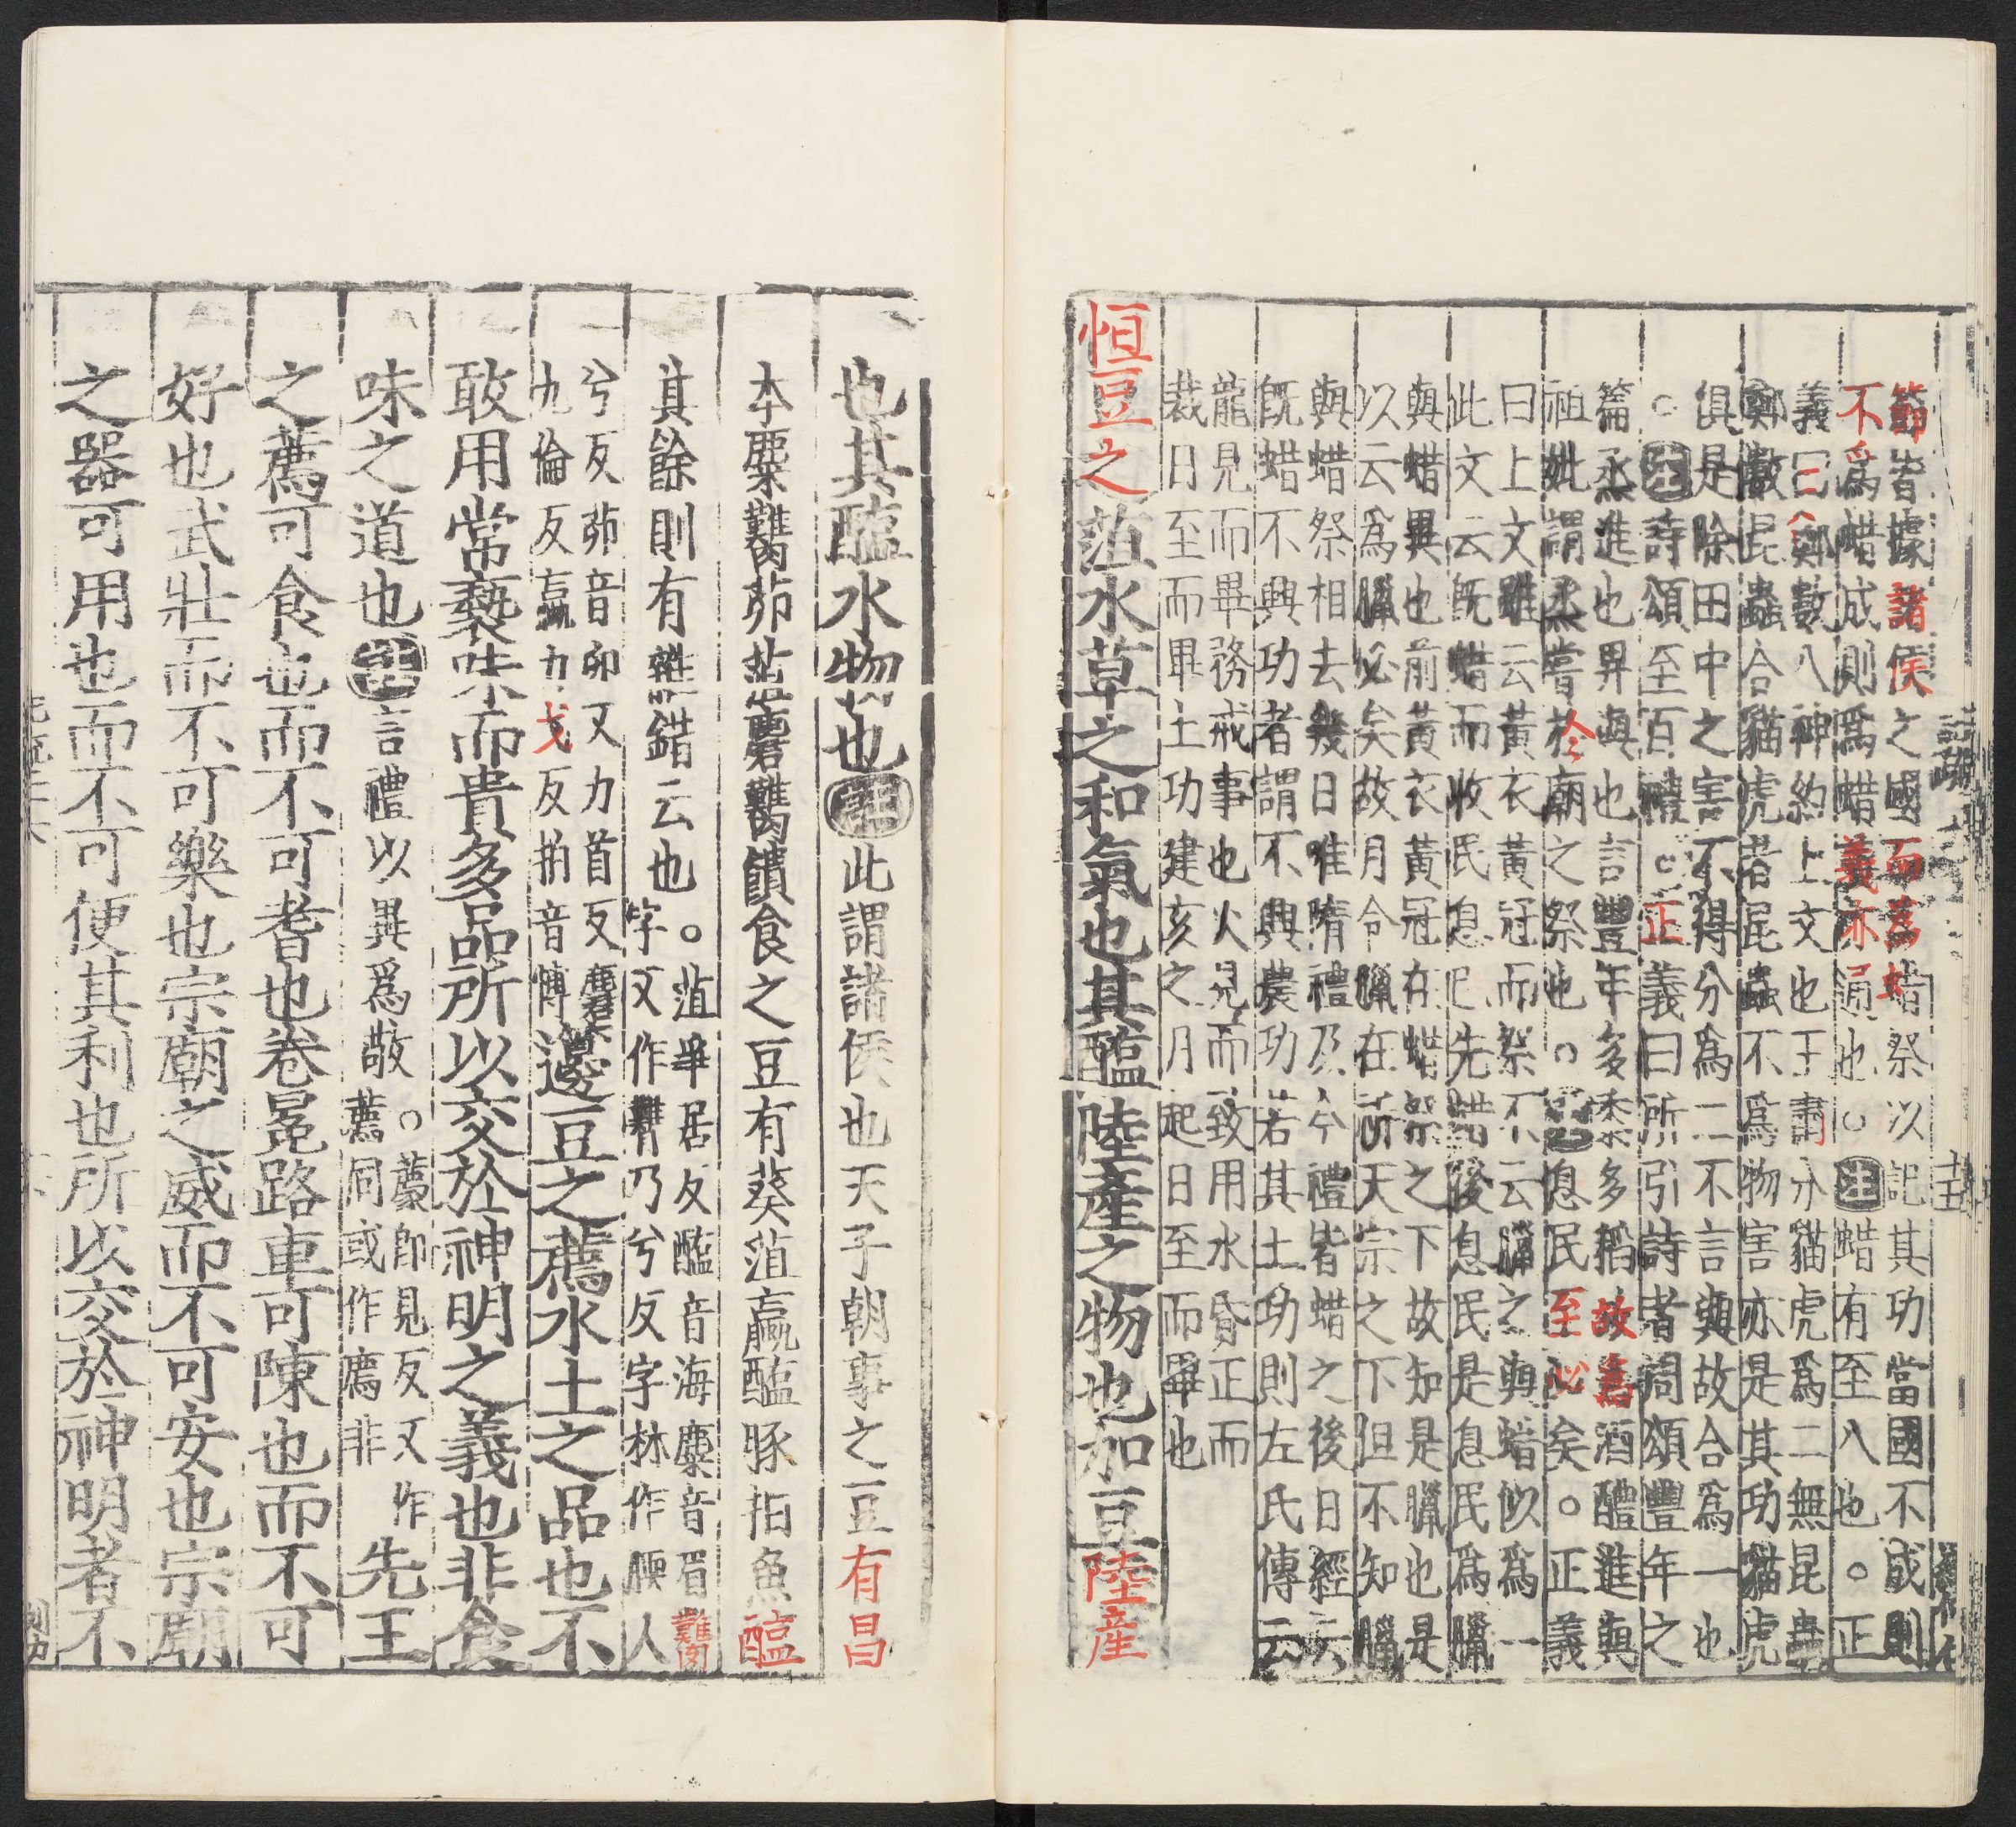 節皆據諸侯之國而為蜡祭以記其功當國不成則
不為蜡成則為蜡義亦通也○注蜡有至八也○正
義曰鄭數八神約上文也王肅分貓虎為二無昆蟲
鄭數昆蟲合貓虎者昆蟲不為物害亦是其功貓虎
俱是除田中之害不得分為二不言與故合為一也
○注詩頌至百禮○正義曰所引詩者周頌豐年之
篇烝進也畀與也言豐年多黍多稻故為酒醴進與
祖妣謂烝嘗於廟之祭也○息民至必矣○正義
曰上文雖云黃衣黃冠而祭不云臘之與蜡似為一
此文云旣蜡而收民息已先蜡後息民是息民為臘
與蜡異也前黃衣黃冠在蜡祭之下故知是臘也是
以云為臘必矣故月令臘在祈天宗之下但不知臘
與蜡祭相去幾日唯隋禮及今禮皆蜡之後日經云
旣蜡不興功者謂不興農功若其土功則左氏傳云
龍見而畢務戒事也火見而致用水昏正而
栽日至而畢土功建亥之月起日至而畢也
恒豆之菹水草之和氣也其醢陸產之物也加豆陸產
也其醢水物也注此謂諸侯也天子朝事之豆有昌
本麋臡茆菹麇臡饋食之豆有葵菹蠃醢豚拍魚醢
其餘則有雜錯云也○菹莊居反醢音海麋音眉臡
字又作䐓乃兮反字林作腝人
兮反茆音卯又力首反麇
九倫反蠃力戈反拍音愽籩豆之薦水土之品也不
敢用常褻味而貴多品所以交於神明之義也非食
味之道也注言禮以異為敬○薦即見反又作
薦同或作廌非先王
之薦可食也而不可耆也卷冕路車可陳也而不可
好也武壯而不可樂也宗廟之威而不可安也宗廟
之器可用也而不可便其利也所以交於神明者不